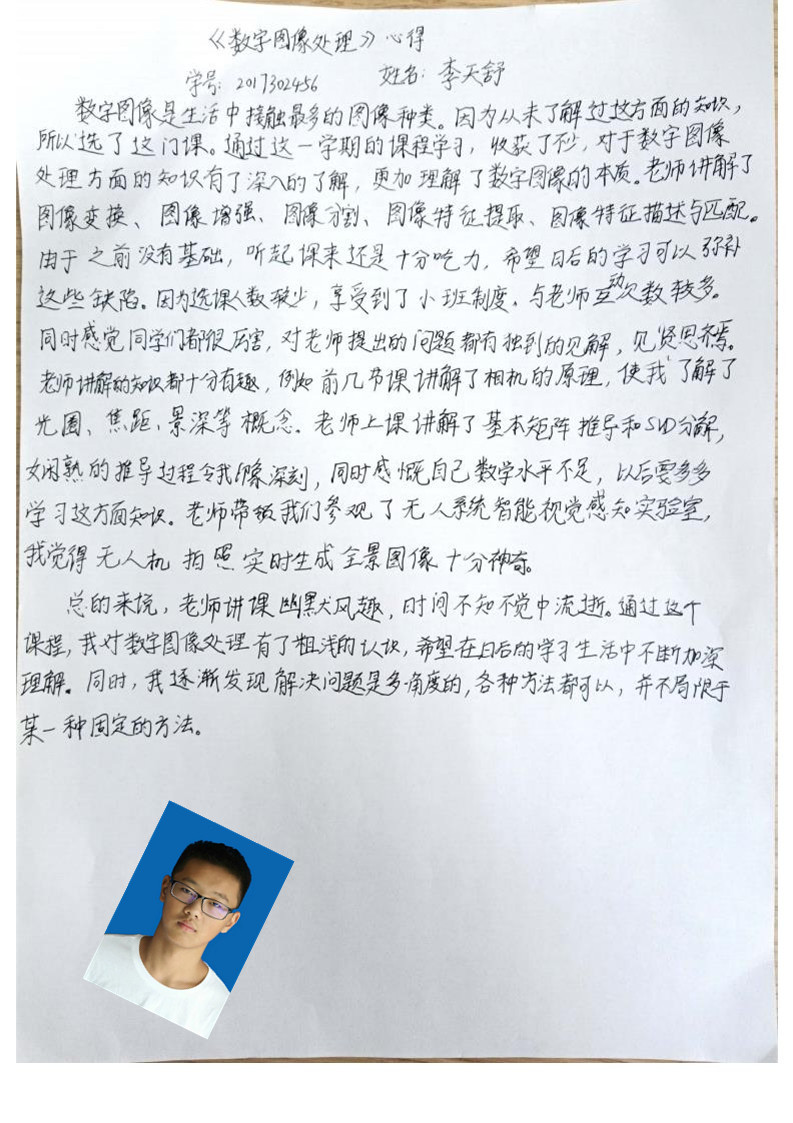 《数字图像处理》心得
学号：2017302456 姓名：李天舒
数字图像是生活中接触最多的图像种类。因为从未了解过这方面的知识，
所以选了这门课。通过这一学期的课程学习，收获了不少，对于数字图像
处理方面的知识有了深入的了解，更加理解了数字图像的本质。老师讲解了
图像变换、图像增强、图像分割、图像特征提取、图像特征描述与匹配。
由于之前没有基础，听起课来还是十分吃力，希望日后的学习可以弥补
这些缺陷。因为选课人数较少，享受到了小班制度。与老师互动次数较多。
同时感觉同学们都很厉害，对老师提出的问题都有独到的见解，见贤思齐焉。
老师讲解的知识都十分有趣，例如前几节课讲解了相机的原理，使我了解了
光圈、焦距、景深等概念。老师上课讲解了基本矩阵推导和SVD分解，
娴熟的推导过程令我印象深刻，同时感慨自己数学水平不足，以后要多多
学习这方面知识。老师带领我们参观了无人系统智能视觉感知实验室，
我觉得无人机拍照实时生成全景图像十分神奇。
总的来说，老师讲课幽默风趣，时间不知不觉中流逝。通过这个
课程，我对数字图像处理有了粗浅的认识，希望在日后的学习生活中不断加深
理解。同时，我逐渐发现解决问题是多角度的，各种方法都可以，并不局限于
某一种固定的方法。